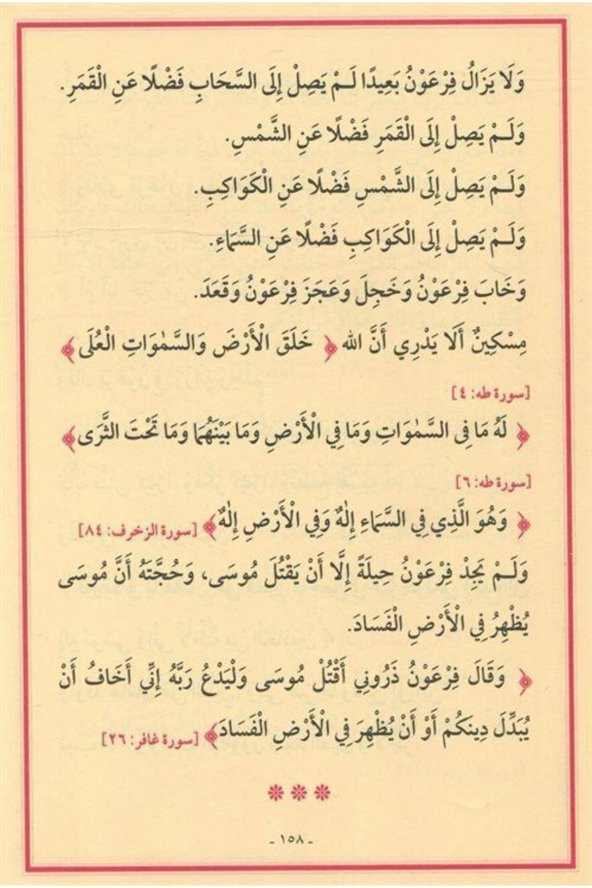 وَلَا يَزَالُ فِرْعَوْنُ بَعِيدًا لَـمْ يَصِلْ إِلَى السَّحَابِ فَضْلًا عَنِ الْقَمَرِ.
وَلَـمْ يَصِلْ إِلَى الْقَمَرِ فَضْلًا عَنِ الشَّمْسِ.
وَلَـمْ يَصِلْ إِلَى الشَّمْسِ فَضْلًا عَنِ الْكَوَاكِبِ.
وَلَـمْ يَصِلْ إِلَى الْكَوَاكِبِ فَضْلًا عَنِ السَّمَاءِ.
وَخَابَ فِرْعَوْنُ وَخَجِلَ وَعَجَزَ فِرْعَوْنُ وَقَعَدَ.
مِسْكِينٌ أَلَا يَدْرِي أَنَّ الله ﴿ خَلَقَ الْأَرْضَ وَالسَّمٰوَاتِ الْعُلَى ﴾
[سورة طه: ٤]
﴿ لَهُ مَا فِى السَّمٰوَاتِ وَمَا فِي الْأَرْضِ وَمَا بَيْنَهُمَا وَمَا تَحْتَ الثَّرَى ﴾
[سورة طه: ٦]
﴿ وَهُوَ الَّذِي فِي السَّمَاءِ إِلٰهٌ وَفِي الْأَرْضِ إِلٰهٌ ﴾ [سورة الزخرف: ٨٤]
وَلَـمْ يَجِدْ فِرْعَوْنُ حِيلَةً إِلَّا أَنْ يَقْتُلَ مُوسَى، وَحُجَّتُهُ أَنَّ مُوسَى
يُظْهِرُ فِي الْأَرْضِ الْفَسَادَ.
﴿ وَقَالَ فِرْعَوْنُ ذَرُونِي أَقْتُلْ مُوسَى وَلْيَدْعُ رَبَّهُ إِنِّي أَخَافُ أَنْ
يُبَدِّلَ دِينَكُمْ أَوْ أَنْ يُظْهِرَ فِي الْأَرْضِ الْفَسَادَ ﴾ [سورة غافر: ٢٦]
- ١٥٨ -